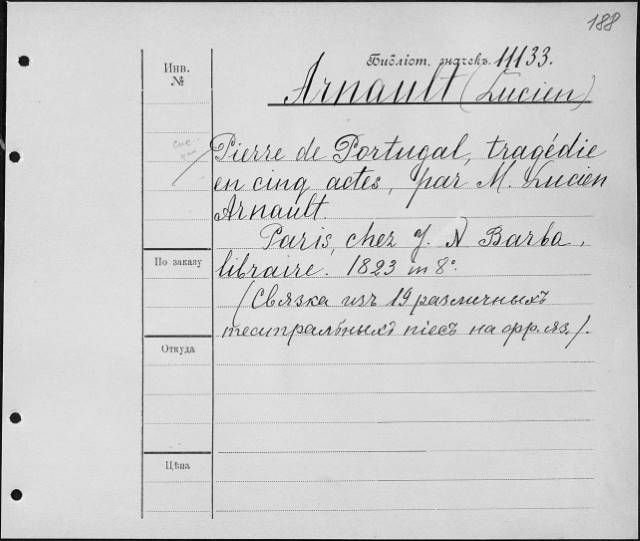 188
Инв.
№
Библіот. значекъ 11133.
Arnault (Lucien)
Pierre de Portugal, tragédie
en cinq actes, par M. Lucien
Arnault.
Paris, chez J. N Barba,
По заказу
libraire. 1823 in 8°.
(Связка изъ 19 различныхъ
театральныхъ піесъ на фр. яз.).
Откуда
Цѣна